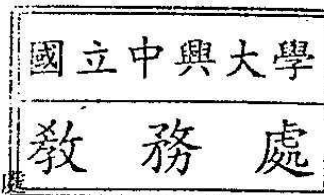 國立中興大學
教務處
處